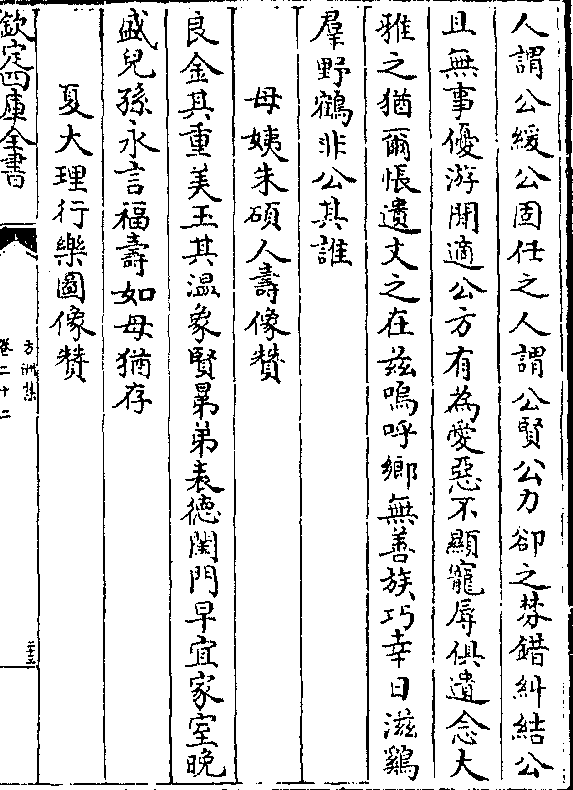 人謂公緩公固任之人謂公賢公力卻之棼錯糾結公
且無事優游閒適公方有為愛惡不顯寵辱俱遺念大
雅之猶爾悵遺文之在兹嗚呼鄉無善族巧幸日滋鷄
羣野鶴非公其誰
母姨朱碩人壽像贊
良金其重美玉其温象賢昴弟表德閨門早宜家室晚
盛兒孫永言福壽如母猶存
夏大理行樂圖像贊
欽定四庫全書
方洲集
卷二十二
二十三